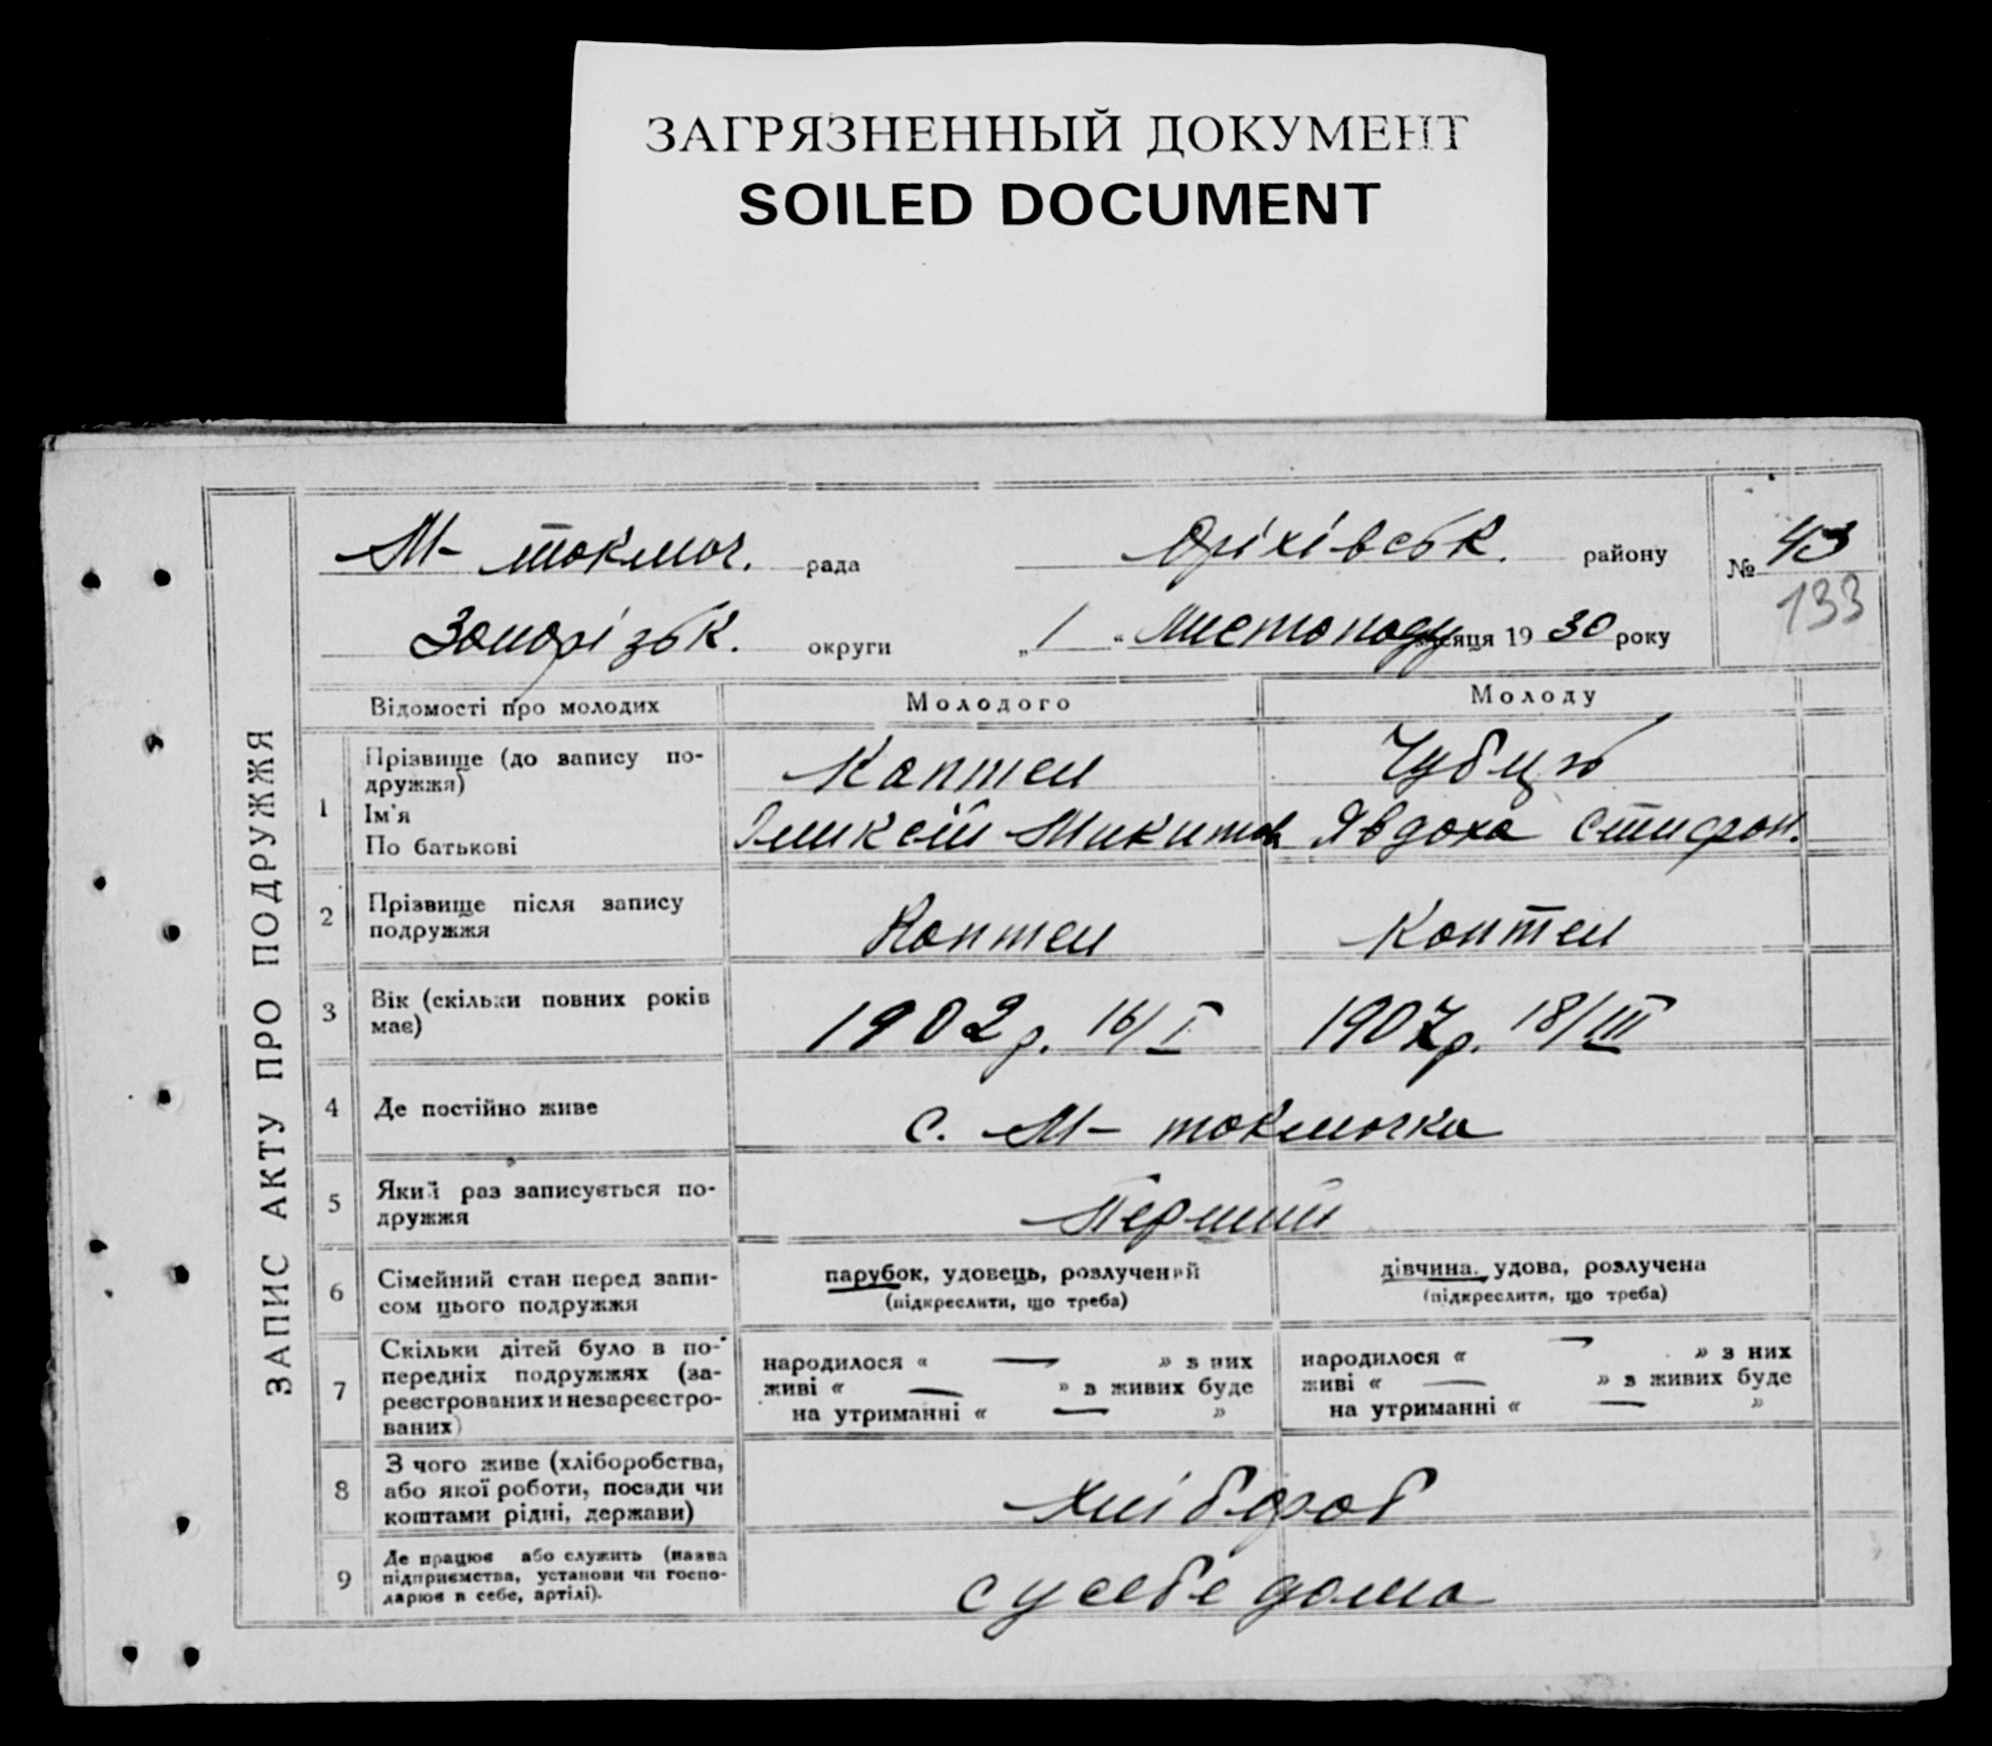 ЗАГРЯЗНЕННЫЙ ДОКУМЕНТ
SOILED DOCUMENT
ЗАПИС АКТУ ПРО ПОДРУЖЖЯ
М- токмач. рада Оріхівськ. району № 43
133
Запорізьк. округи „ 1 " Листопаду місяця 19 30 року
Відомості про молодих Молодого Молоду
1 Прізвище (до запису по-
дружжя) Каптел Чубць
Ім'я
По батькові Микитов Явдоха
2 Прізвище після запису
подружжя Каптел Каптел
3 Вік (скільки повних років
має) 1902 р. 16/I 1907 р. 18/III
4 Де постійно живе с. М- токмачка
5 Який раз записується по-
дружжя Перший
6 Сімейний стан перед запи-
сом цього подружжя парубок, удовець, розлучений дівчина, удова, розлучена
(підкреслити, що треба) (підкреслити, що треба)
7 Скільки дітей було в по-
передніх подружжях (за-
реєстрованих и незареєстро-
ваних)
народилося « — » з них народилося « — » з них
живі « — » в живих буде живі « — » в живих буде
на утриманні « — » на утриманні « — »
8 З чого живе (хліборобства,
або якої роботи, посади чи
коштами рідні, держави) хлібороб
9 Де працює або служить (назва
підприємства, установи чи госпо-
дарює в себе, артілі). с у себе дома